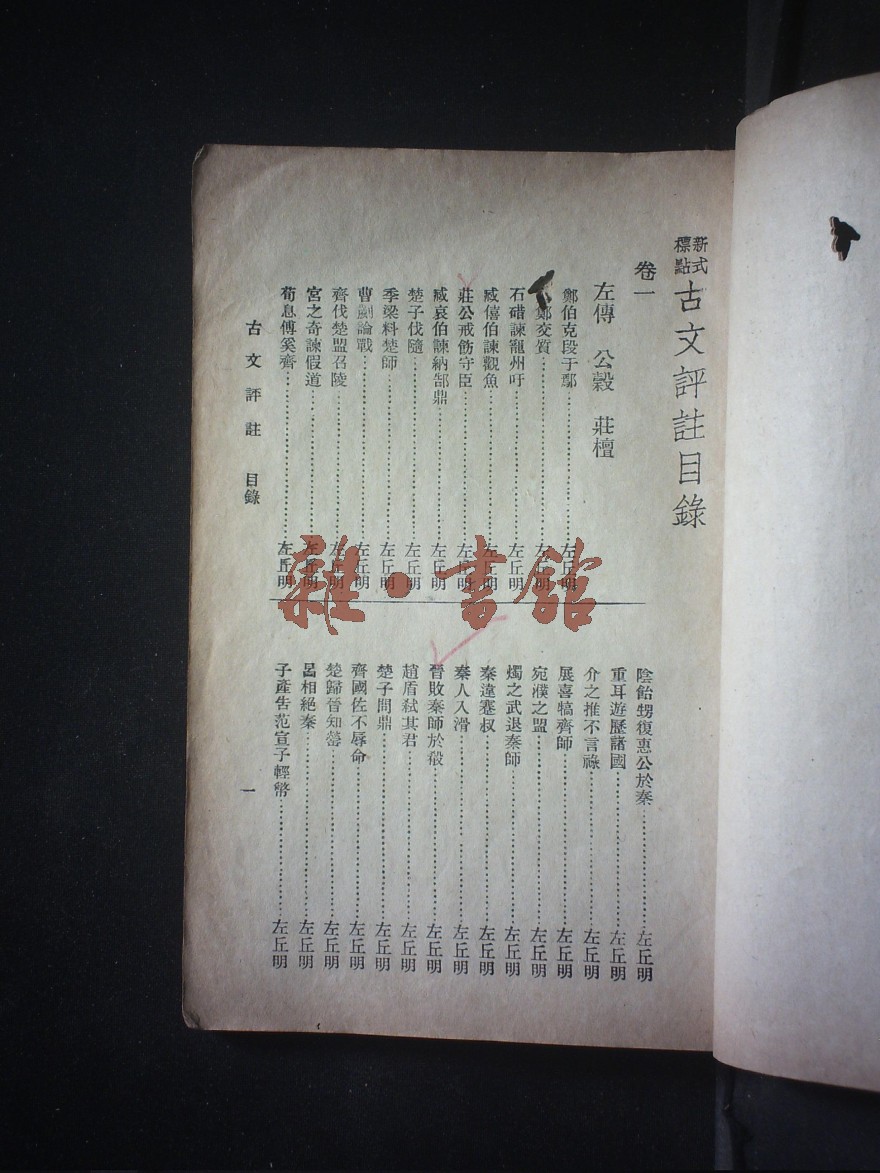 新式標點 古文評註目錄
卷一
左傳 公穀 莊檀
鄭伯克段于鄢……左丘明
鄭交質……左丘明
石碏諫寵州吁……左丘明
臧僖伯諫觀魚……左丘明
莊公戒飭守臣……左丘明
臧哀伯諫納郜鼎……左丘明
楚子伐隨……左丘明
季梁料楚師……左丘明
曹劌論戰……左丘明
齊伐楚盟召陵……左丘明
宮之奇諫假道……左丘明
荀息傅奚齊……左丘明
陰飴甥復惠公於秦……左丘明
重耳遊歷諸國……左丘明
介之推不言祿……左丘明
展喜犒齊師……左丘明
宛濮之盟……左丘明
燭之武退秦師……左丘明
秦違蹇叔……左丘明
秦人入滑……左丘明
晉敗秦師於殽……左丘明
趙盾弒其君……左丘明
楚子問鼎……左丘明
齊國佐不辱命……左丘明
楚歸晉知罃……左丘明
呂相絕秦……左丘明
子產告范宣子輕幣……左丘明
古文評註 目錄 一
雜·書館